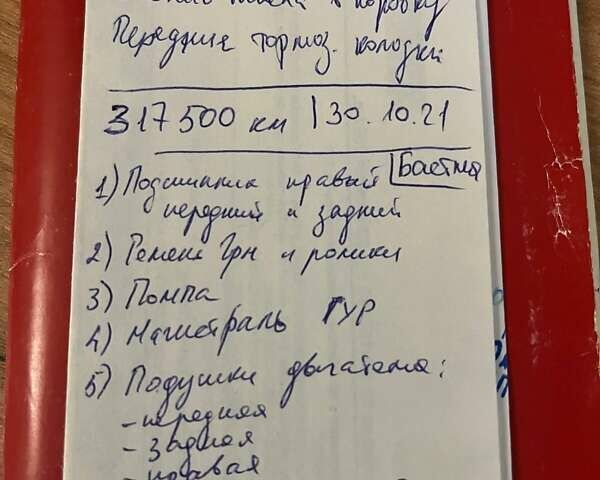 в коробку
Передние тормоз. колодки
317 500 км | 30. 10. 21
1) Подшипник правый
передний и задний
2) Ремень Грм и ролики
3) Помпа
4) Магистраль ГУР
5) Подушки двигателя:
- передняя
- задняя
- правая